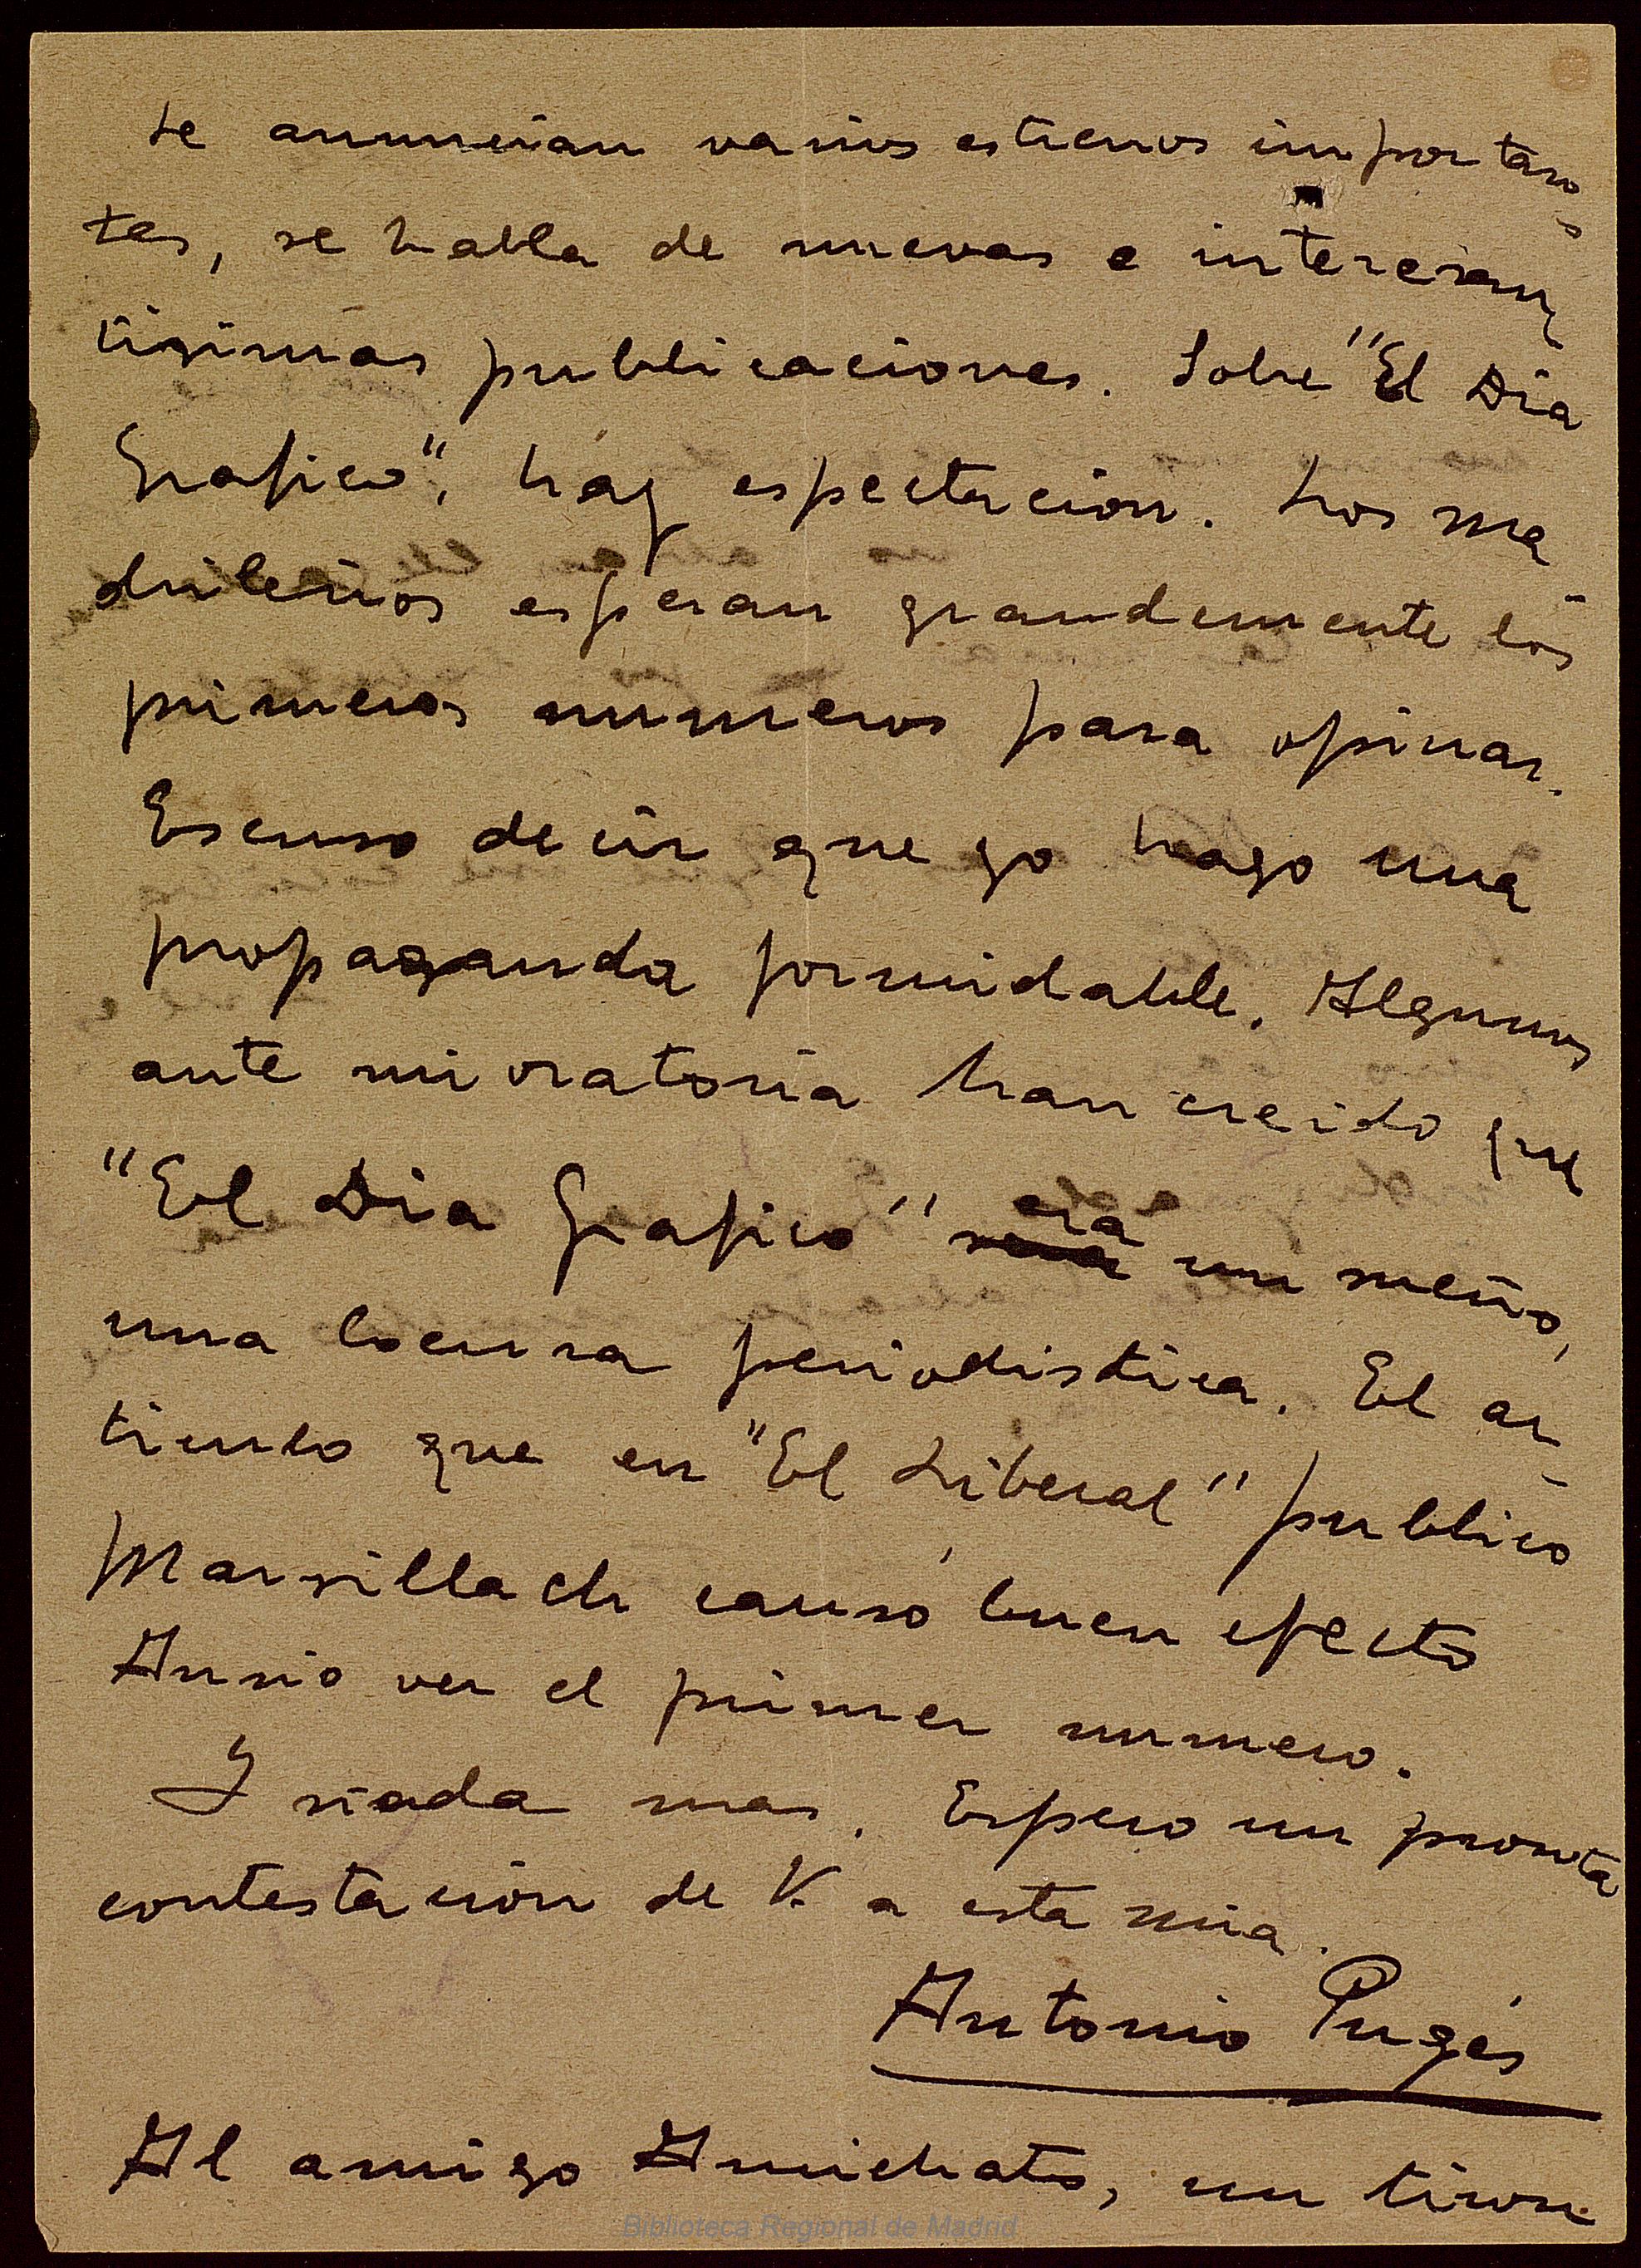 se anuncian varios estrenos importan-
tes, se habla de nuevas e interesan-
tisimas publicaciones. Sobre "El Dia
Grafico", hay espectación. Los ma
drileños esperan grandemente los
primeros numeros para opinar.
Escuso decir que yo hago una
propaganda formidable. Algunos
ante mi oratoria han creido que
"El Dia Grafico" era un sueño,
una locura periodistica. El ar-
ticulo que en "El Liberal" publico
Marsillach causó buen efecto
Ansio ver el primer numero.
Y nada mas. Espero un pronta
contestación de V. a esta mia.
Antonio Pugés
Al amigo Amichatis, un tiron
Biblioteca Regional de Madrid